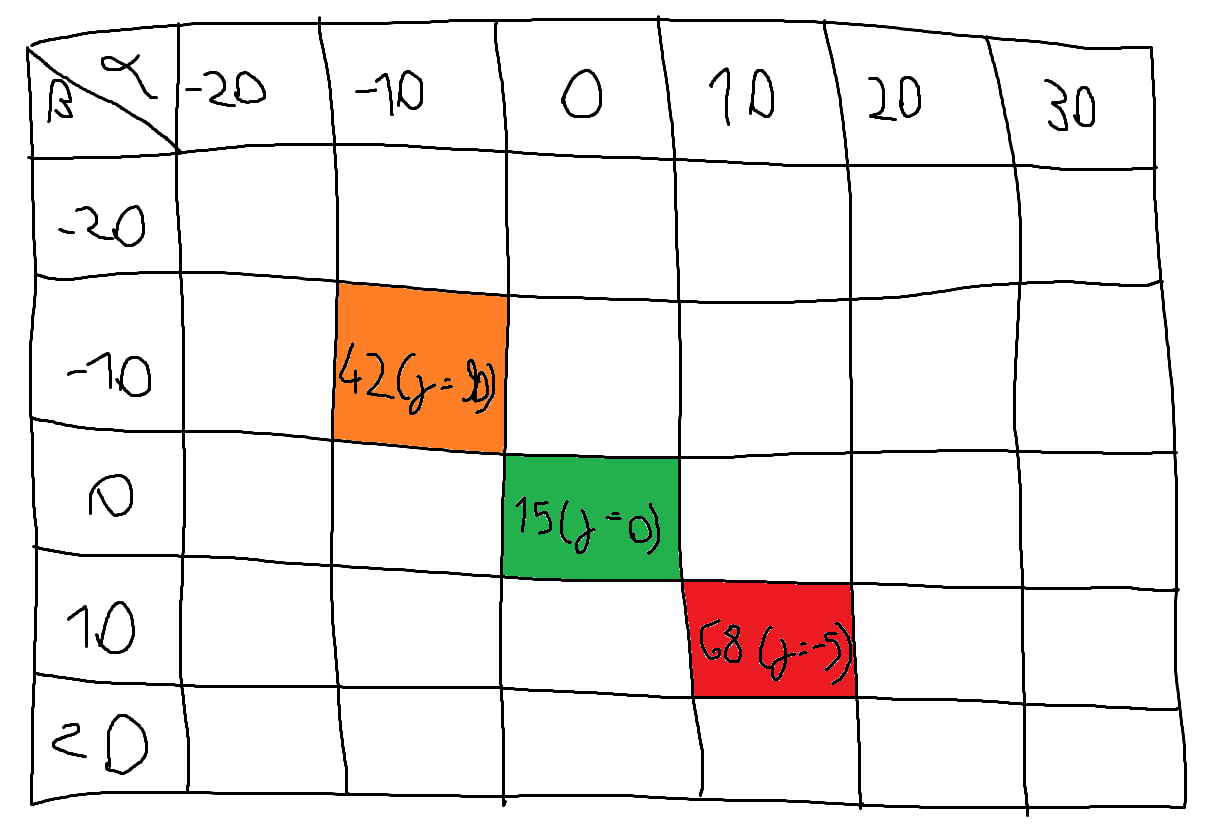 α -20 -10 0 10 20 30
β
-20
-10 42(γ=20)
0 15(γ=0)
10 68(γ=-5)
20